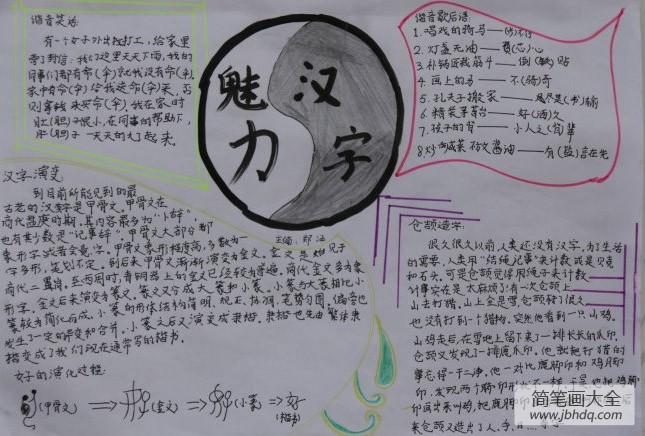 谐音笑话:
有一个女子外出找打工,给家里
寄了封信:我们这里天天下雨,我的
同事们都有命(伞)就我没有命(伞)
家中有命(伞)给我送命(伞)来,否
则拿钱来买命(伞)我在家时
肚(胆)子很小,在同事的帮助下,
肚(胆)子一天天的大了起来.
魅力
汉字
谐音歇后语:
1.唱戏的骑马——
2.灯盏无油——费(芯)心
3.补锅匠栽筋斗——倒(贴)贴
4.画上的马——不(骑)奇
5.孔夫子搬家——尽是(书)输
6.精装茅台——好(酒)久
7.孩子的背——小人之(背)辈
8.炒咸菜放酱油——有(盐)言在先
汉字演变
到目前所能见到的最
古老的汉字是甲骨文。甲骨文在
商代盛庚时期,其内容最多为“卜辞”,
也有少数是“记事辞”。甲骨文大部分都
象形字或者会意字。甲骨文象形程度高,多数为一
字多形,笔划不定。到后来甲骨文渐渐演变为金文。金文是始见于
商代二里岗。至西周时,青铜器上的金文已经较为普遍。商代金文多为象
形字。金文后来演变为篆文。篆文又分成大篆和小篆。小篆与大篆相比小
篆较为简化而成。小篆的形体结构简明、规正、协调、笔势匀圆,偏旁也
发生了一定的异变和合并。小篆之后又演变成隶书。隶书也是由繁体隶
楷变成了我们现在通常写的楷书。
主编:
女子的演化过程:
(甲骨文) ⇒ (金文) ⇒ (小篆) ⇒ 好(楷书)
仓颉造字:
很久很久以前,人类还没有汉字。为了生活
的需要,人类用“结绳记事”来计数或是贝壳
和石头。可是仓颉觉得用绳子来计数
计事实在是太麻烦了!有一次仓颉上
山去打猎,山上全是雪仓颉转了很久
也没有打到一个猎物。突然他看到一只山鸡。
山鸡走后,在雪地上留下来了一排长长的爪印。
仓颉又发现了一排鹿爪印。他就把打猎的
事忘得一干二净。他一对比鹿脚印和鸡脚
印,发现两个脚印形状不一样。于是他把鸡脚
印画出来叫鸡,把鹿脚印
来仓颉又造出了人、手
简笔画大全
www.jbhdq.com